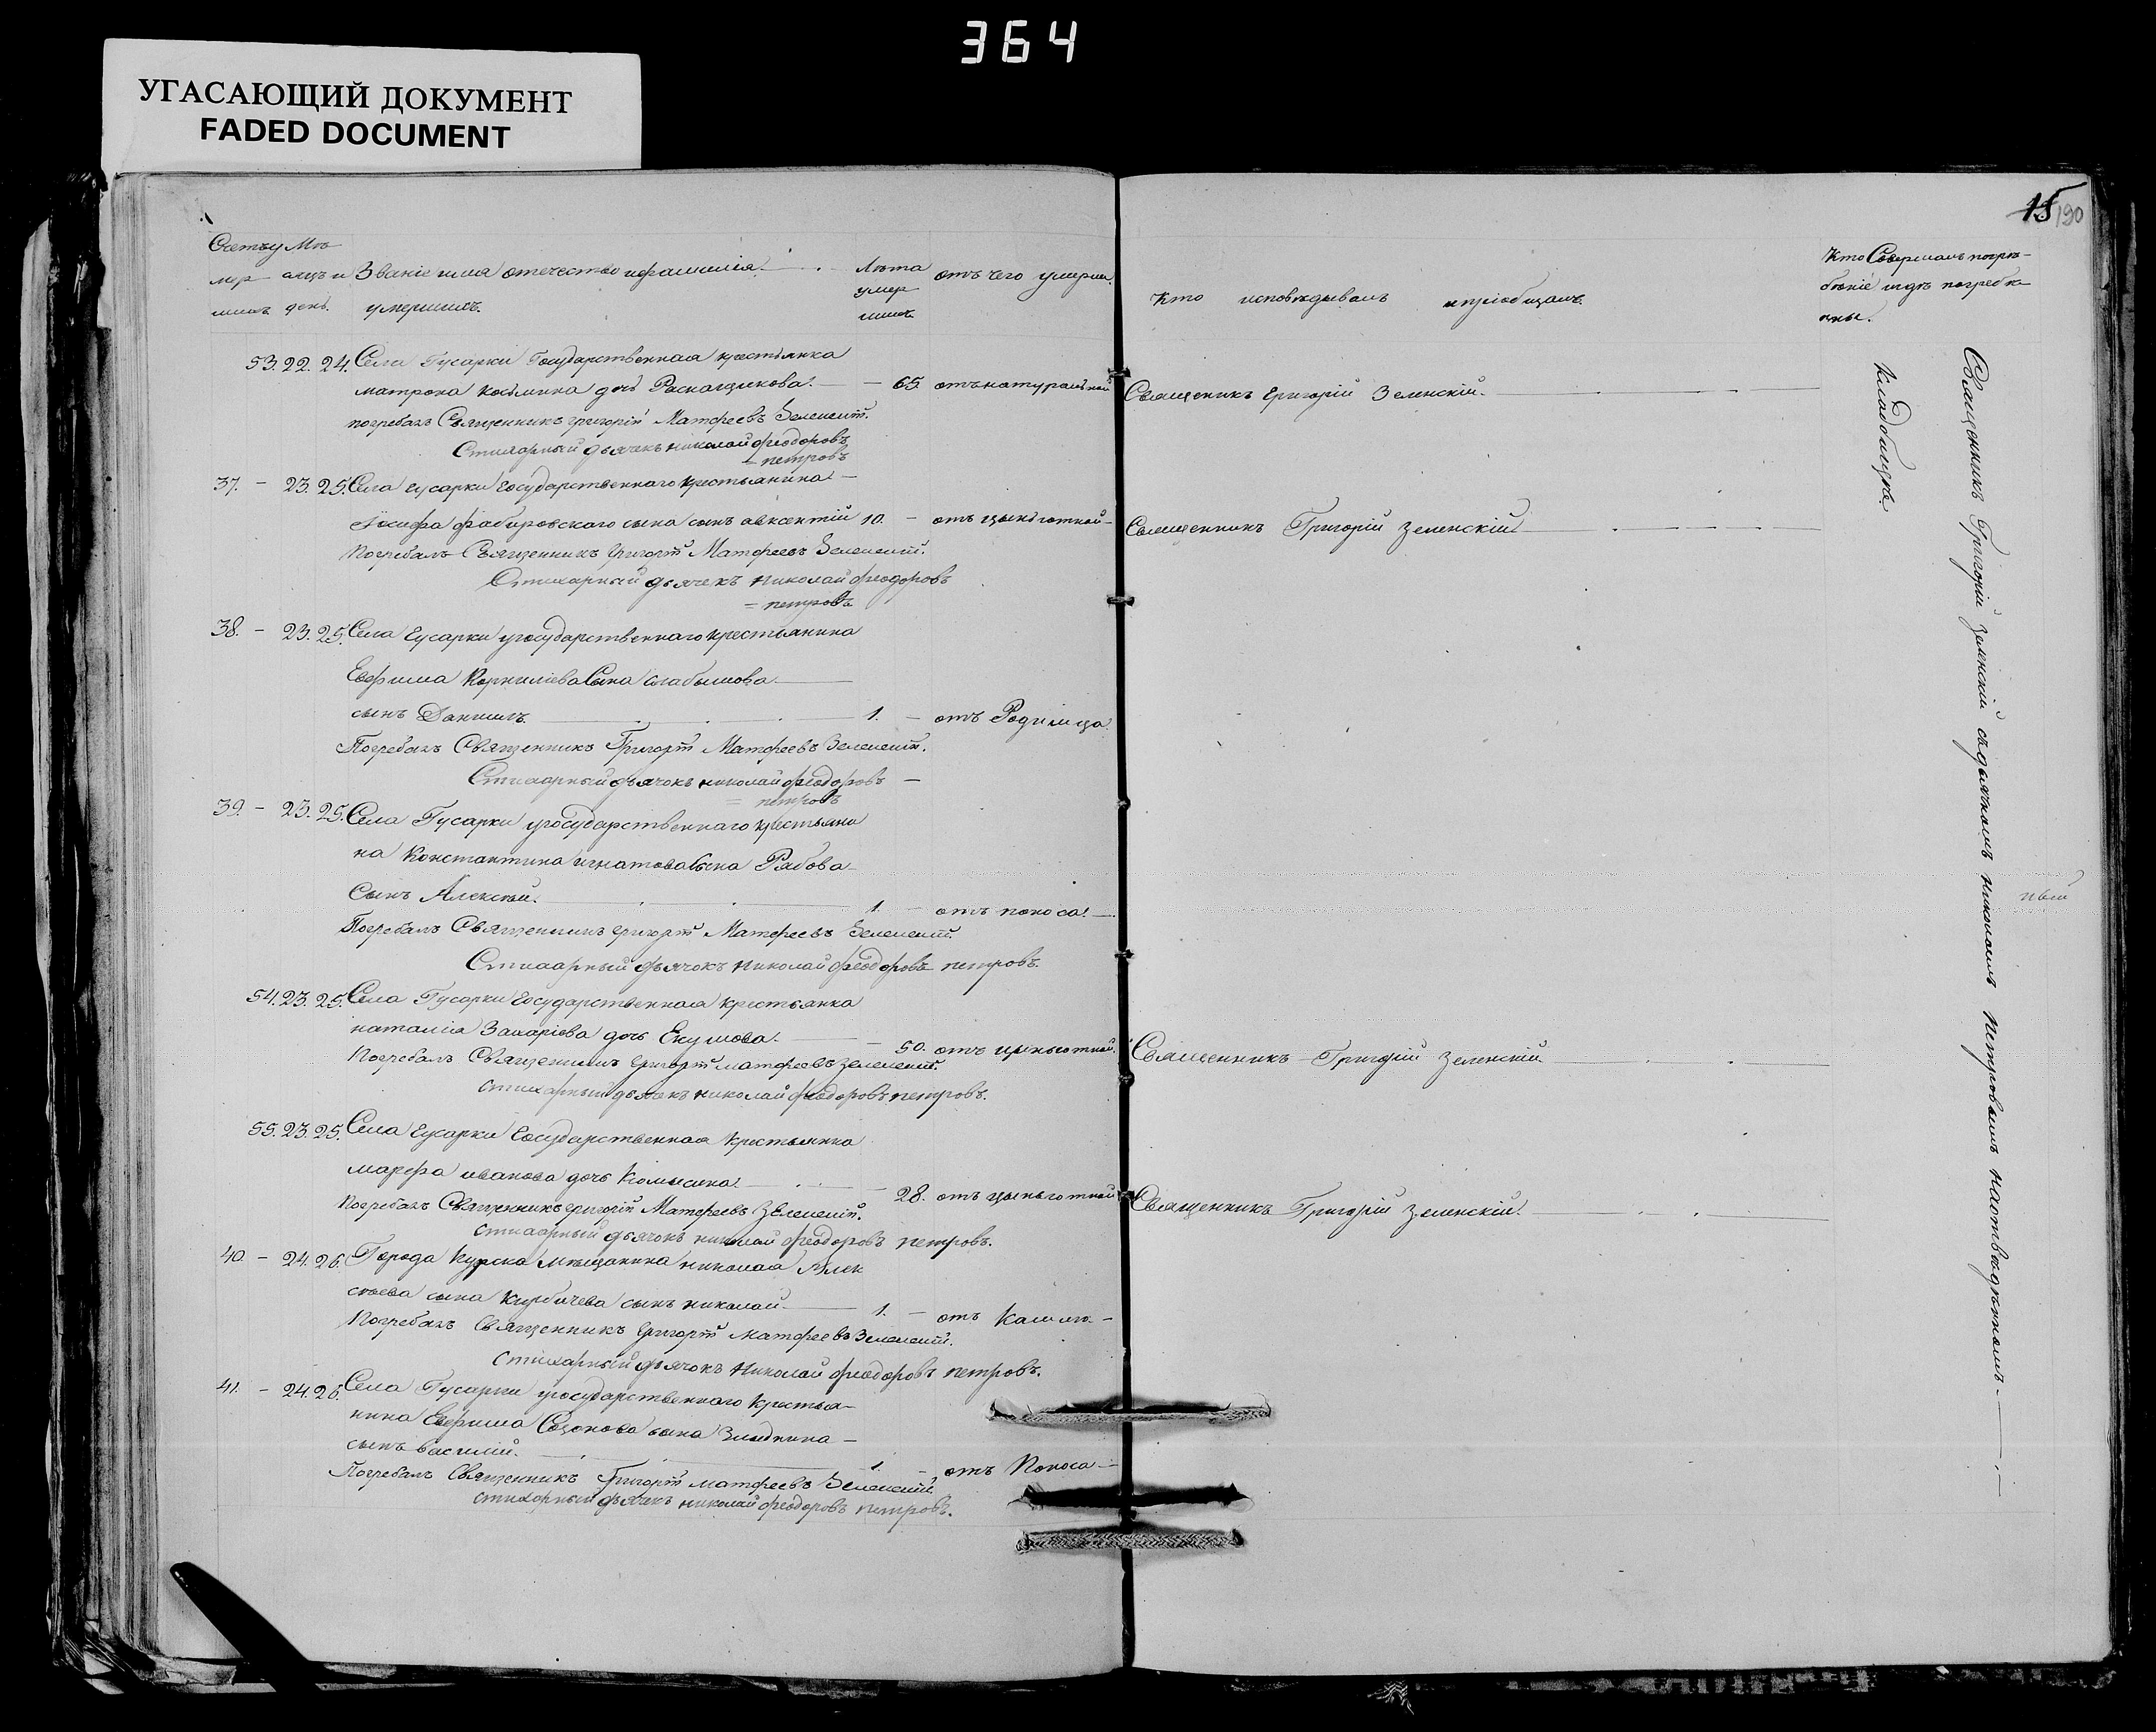 364
УГАСАЮЩИЙ ДОКУМЕНТ
FADED DOCUMENT
15 190
Счетъ у Мѣ
мер сяцъ и Званіе имя отечество и фамилія Лѣта отъ чего умерли.
шихъ день. умершихъ. умер
шихъ
Кто исповѣдывалъ и пріобщалъ.
Кто Совершалъ погрѣ-
бѣніе и гдѣ погребѣ-
ны.
53. 22. 24. Села Гусарки Государственная крестьянка
матрона Косьмина дочь 65. отъ натуральной Священикъ Григорій Зеленскій.
погребалъ Священникъ григорій Матфеевъ Зеленскій.
Стихарный дьячекъ николай феодоровъ
= петровъ
37. – 23. 25. Села Гусарки Государственнаго крестьянина
Іосифа сына сынъ авксентій 10. – отъ цынготной Священникъ Григорій Зеленскій
Погребалъ Священникъ Григорій Матфеевъ Зеленскій.
Стихарный дьячекъ николай феодоровъ
= петровъ
38. – 23. 25. Села Гусарки у государственнаго крестьянина
Евфима Корнилѣева Сына
сынъ Даниилъ. 1. – отъ Родимца
Погребалъ Священникъ Григорій Матфеевъ Зеленскій.
Стихарный дьячокъ николай феодоровъ –
= петровъ
39. – 23. 25. Села Гусарки у государственнаго крестьяни
на Константина игнатова Сына Рябова
Сынъ Алексѣй. 1. – отъ поноса.
Погребалъ Священникъ григорій Матфеевъ Зеленскій.
Стихарный дьячокъ николай феодоровъ петровъ.
54. 23. 25. Села Гусарки Государственная крестьянка
наталія Захаріева дочь 50. отъ цынготной. Священникъ Григорій Зеленскій
Погребалъ Священникъ Григорій матфеевъ Зеленскій.
стихарный дьячекъ николай феодоровъ петровъ.
55. 23. 25. Села Гусарки Государственная крестьянка
марфа иванова дочь 28. отъ цынготной Священникъ Григорій Зеленскій.
Погребалъ Священникъ григорій Матфеевъ Зеленскій.
стихарный дьячокъ николай феодоровъ петровъ.
40. – 24. 26. Города Курска Мѣщанина николая Алек
сѣева сына сынъ николай 1. – отъ Кашля –
Погребалъ Священникъ Григорій Матфеевъ Зеленскій.
стихарный дьячокъ Николай феодоровъ петровъ.
41. – 24. 26. Села Гусарки у государственнаго крестья-
нина Евфима сына
сынъ василій. 1. – отъ Поноса
Погребалъ Священникъ Григорій матфеевъ Зеленскій
стихарный дьячекъ николай феодоровъ петровъ.
кладбищѣ
Священникъ Григорій Зеленскій съ дьячкомъ николаемъ Петровымъ